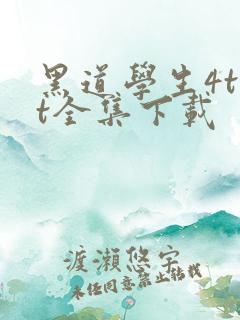 黑道學生4t
t全集下載
渡瀨悠宇
未经同意禁止转载